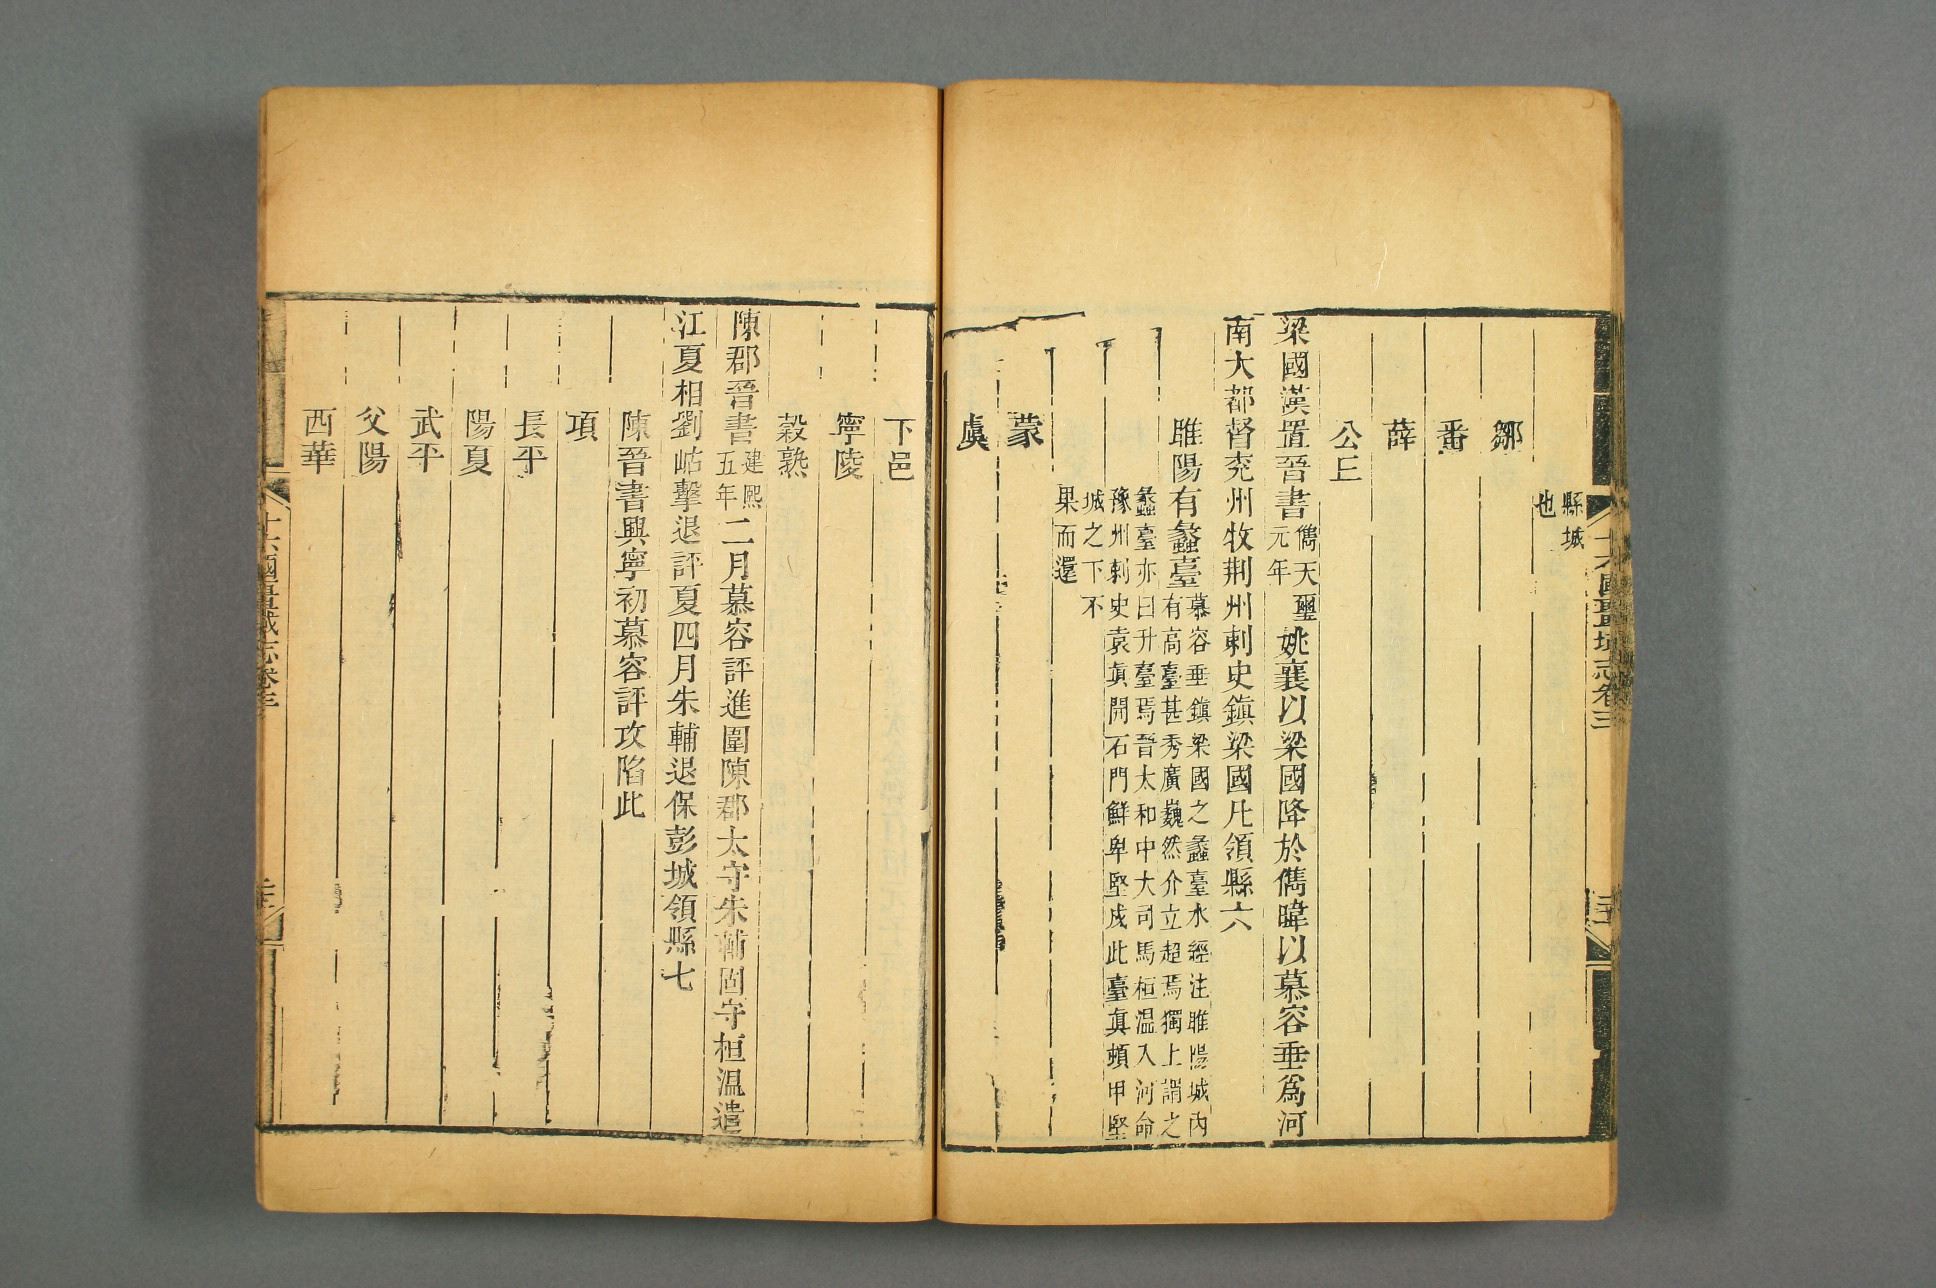 縣城
也
鄒
番
薛
公丘
梁國漢置晉書儁天璽元年姚襄以梁國降於儁暐以慕容垂爲河
南大都督兖州牧荆州刺史鎮梁國凡領縣六
睢陽有蠡臺慕容垂鎮梁國之蠡臺水經注睢陽城內
有高臺甚秀廣巍然介立超焉獨上謂之
蠡臺亦曰升臺焉晉太和中大司馬桓温入河命
豫州刺史袁真開石門鮮卑堅戍此臺真頓甲堅
城之下不
果而還
蒙
虞
下邑
寧陵
穀熟
陳郡晉書建熙五年二月慕容評進圍陳郡太守朱輔固守桓温遣
江夏相劉岵擊退評夏四月朱輔退保彭城領縣七
陳晉書興寧初慕容評攻陷此
項
長平
陽夏
武平
父陽
西華
十六國疆域志卷三